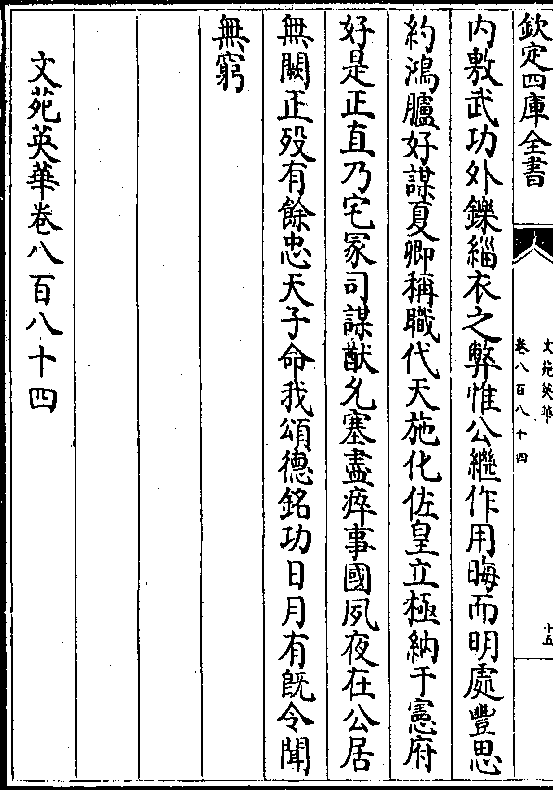 欽定四庫全書
文苑英華
卷八百八十四
十五
内敷武功外鑠緇衣之弊惟公繼作用晦而明處豐思
約鴻臚好謀夏卿稱職代天施化佐皇立極納于憲府
好是正直乃宅冢司謀猷允塞盡瘁事國夙夜在公居
無闕正歿有餘忠天子命我頌德銘功日月有既令聞
無窮
文苑英華卷八百八十四